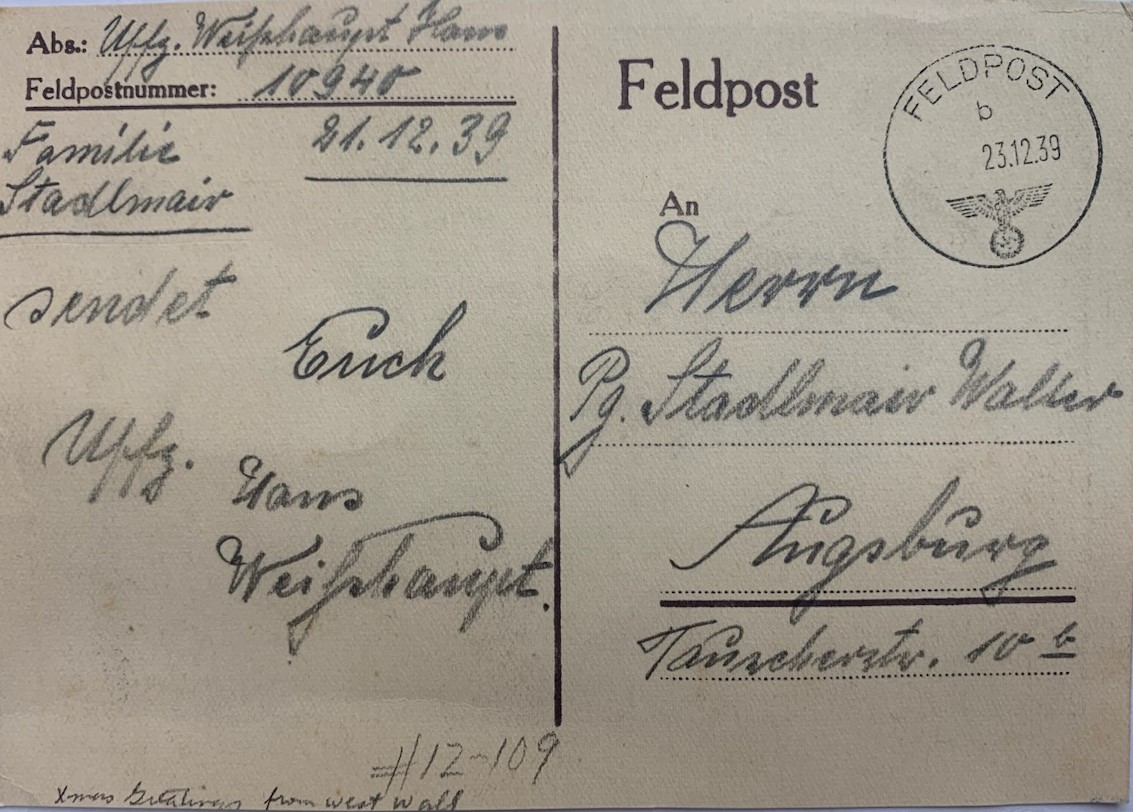 Abs.: Uffz. Weißhaupt Hans
Feldpostnummer: 10940
21.12.39
Familie
Stadlmair
sendet
Euch
Uffz. Hans
Weißhaupt.
Feldpost
FELDPOST
b
23.12.39
An
Herrn
Pg. Stadlmair Walter
Augsburg
Tauscherstr. 10 b
#12-109
Xmas Greetings from west wall